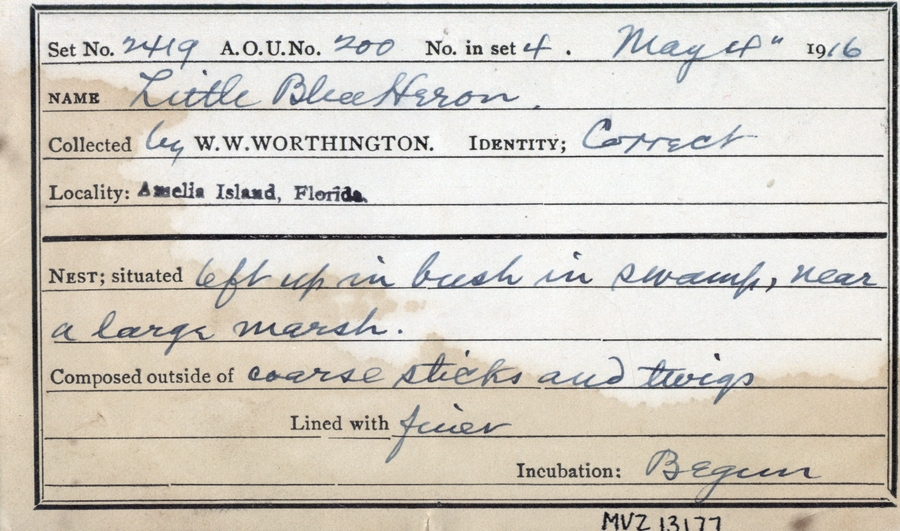 Set No. 2419 A.O.U.No. 200 No. in set 4. May 4" 1916
NAME Little Blue Heron.
Collected by W.W.WORTHINGTON. IDENTITY; Correct
Locality: Amelia Island, Florida.
NEST; situated 6ft up in bush in swamp, near
a large marsh.
Composed outside of coarse sticks and twigs
Lined with finer
Incubation: Begun
MVZ 13177